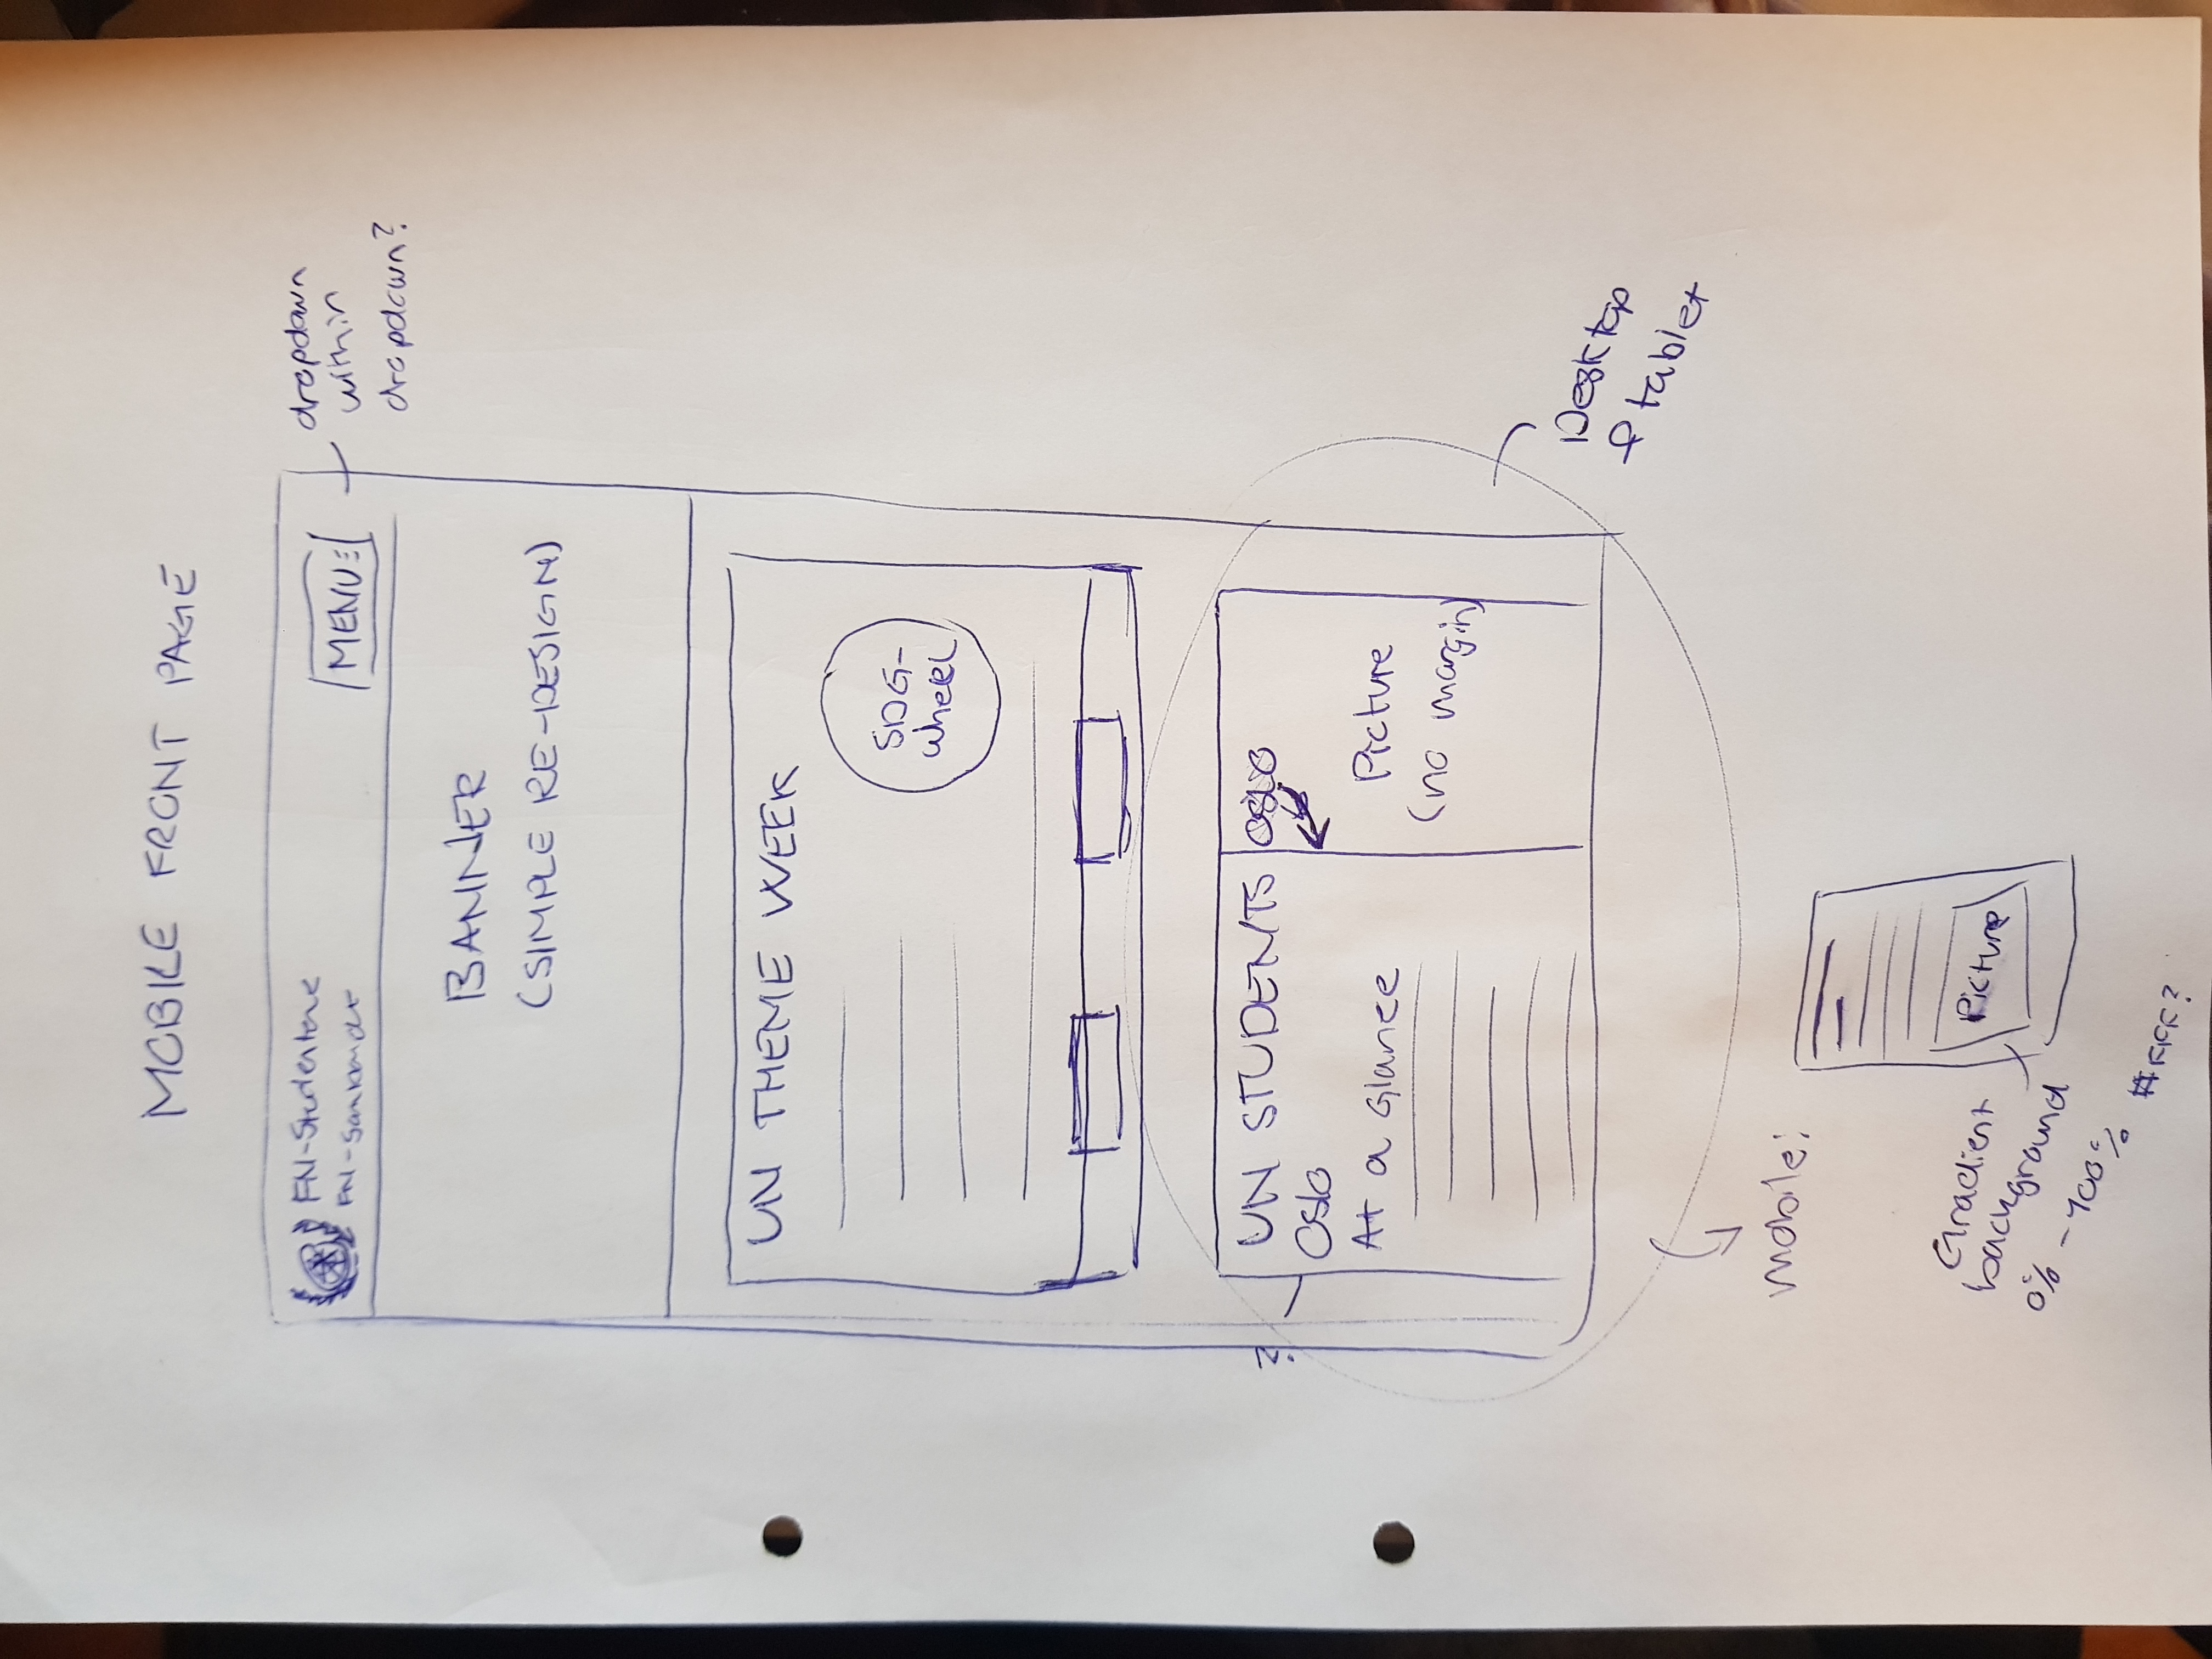 MOBILE FRONT PAGE
FN-Studentene
FN-Sambandet
MENU
dropdown
within
dropdown?
BANNER
(SIMPLE RE-DESIGN)
UN THEME WEEK
SDG-
wheel
UN STUDENTS OSLO
Oslo
At a Glance
?
Picture
(no margin)
Desktop
& tablet
Mobile:
Picture
Gradient
background
0% - 100%
#FFF?